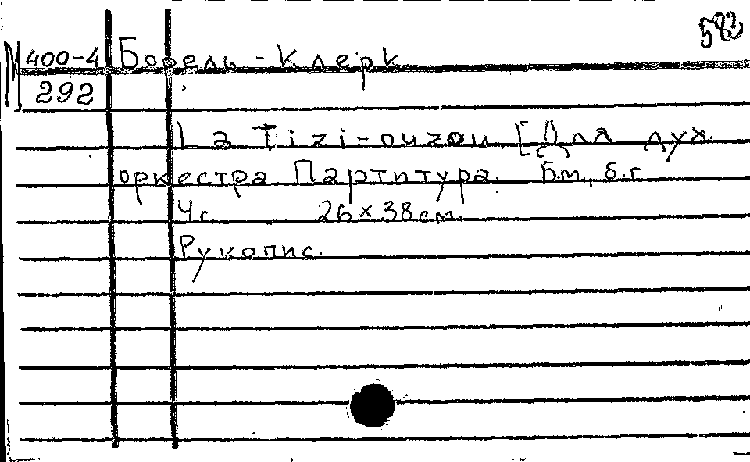 583
М 400-4 Борель-Клерк
292
La Tizi-ouzou [Для дух.
оркестра Партитура. Б.м., б.г.
4 с. 26×38 см.
Рукопис.